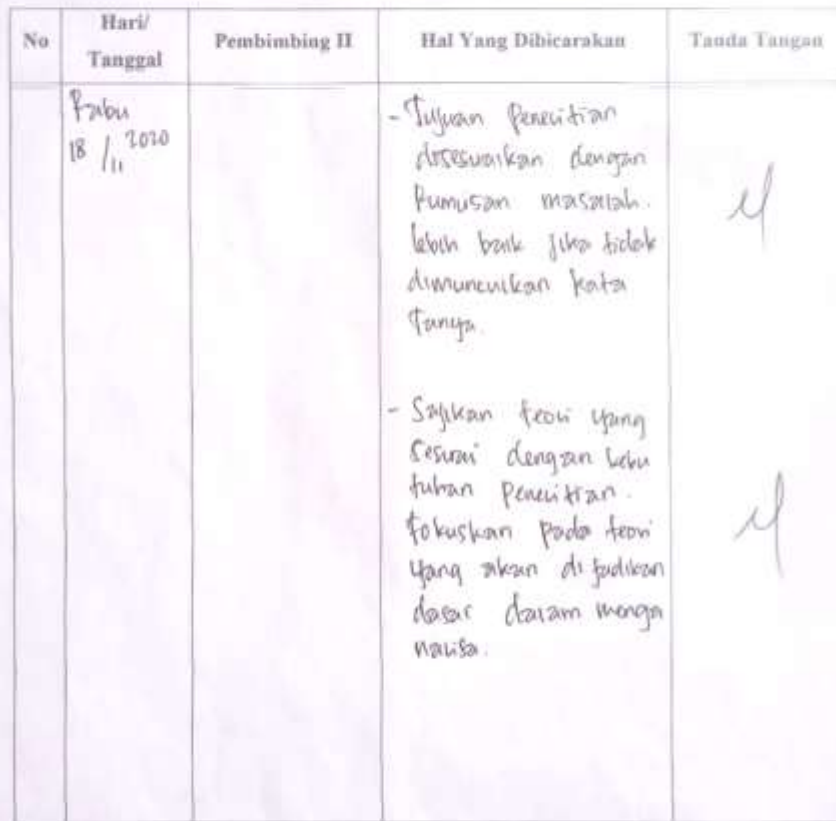 No
Hari/
Tanggal
Pembimbing II
Hal Yang Dibicarakan
Tanda Tangan
Rabu
18/11 2020
- Tujuan Penelitian
disesuaikan dengan
Rumusan masalah.
lebih baik jika tidak
dimunculkan kata
Tanya.
- Sajikan teori yang
sesuai dengan kebu
tuhan Penelitian.
Fokuskan pada teori
yang akan di jadikan
dasar dalam menga
nalisa.